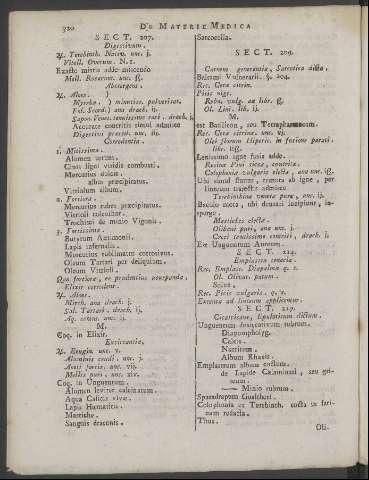 320 DE MATERIE MEDICA
SECT. 207.
Digestivum.
℞. Terbinth. Nativ. unc. j.
Vitell. Ovorum. N. 1.
Exacte mixtis adde miscendo
Mell. Rosarum. unc. ß.
Abstergens.
℞. Aloes. )
Myrrhæ ) minutiss. pulverisat.
Fol. Scord.) ana drach. ij.
Sapon. Venet. tenuissime rasi. drach. j.
Accurate contritis simul admisce
Digestivi præced. unc. iij.
Corrodentia.
1. Mitissima.
Alumen ustum.
Cinis ligni viridis combusti.
Mercurius dulcis.
albus præcipitatus.
Vitriolum album.
2. Fortiora.
Mercurius ruber præcipitatus.
Vitrioli colcothar.
Trochisci de minio Vigonis.
3. Fortissima.
Butyrum Antimonii.
Lapis infernalis.
Mercurius sublimatus corrosivus.
Oleum Tartari per deliquium.
Oleum Vitrioli.
Quo fortiora, eo prudentius adspergenda.
Elixir corrodens.
℞. Aloes.
Mirrh. ana drach. j.
Sal. Tartari. drach. ij.
Aq. comm. unc. ij.
M.
Coq. in Elixir.
Exsiccantia.
℞. Ærugin. unc. v.
Aluminis crudi. unc. j.
Aceti fortis. unc. vij.
Mellis puri. unc. xiv.
Coq. in Unguentum.
Alumen leviter calcinatum.
Aqua Calcis vivæ.
Lapis Hæmatitis.
Mastiche.
Sanguis draconis.
Sarcocolla.
SECT. 209.
Carnem generantia, Sarcotica dicta.
Balsami Vulnerarii. §. 204.
Rec. Ceræ citrin.
Picis nigr.
Resin. vulg. aa libr. ß.
Ol. Lini. lib. ij.
M.
est Basilicon, seu Tetrapharmacum.
Rec. Ceræ citrinæ. unc. vj.
Olei florum Hyperic. in factione parati.
libr. iiß.
Lenissimo igne fusis adde.
Resinæ Pini siccæ, contritæ.
Colophoniæ vulgaris electæ, ana unc. iß.
Ubi simul fluunt, remota ab igne, per
linteum trajectis admisce
Terebinthinæ venetæ puræ, unc. ij.
Baculo mota, ubi densari incipiunt, inspergo.
Mastiches electæ.
Olibani puri, ana unc. j.
Croci tenuissime contriti, drach. j.
Est Unguentum Aureum.
SECT. 214.
Emplastra tenacia.
Rec. Emplast. Diapalma q. v.
Ol. Olivar. putam.
Seces.
Rec. Picis vulgaris. q. v.
Extensa ad linteum applicentur.
SECT. 217.
Cicatricans, Epuloticum dictum.
Unguentum desiccativum rubrum.
Diapompholyg.
Calcis.
Nutritum.
Album Rhasis.
Emplastrum album coctum.
de Lapide Calaminari, seu griseum.
—— Minio rubrum.
Sparadrapum Gualtheri.
Colophonia ex Terbinth. cocta in farinam redacta.
Thus.
Oli.